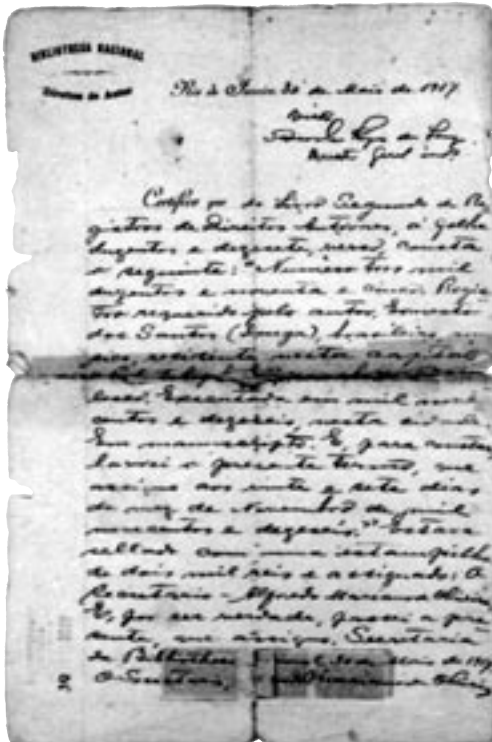 BIBLIOTHECA NACIONAL
Direitos de Autor
Rio de Janeiro 30 de Maio de 1917
Visto
Director Geral
Certifico que do Livro Segundo de Re
gistros de Direitos Autoraes, á folha
duzentos e dezesete, verso, consta
o seguinte: "Numero tres mil
duzentos e noventa e cinco. Regis
tro requerido pelo autor, Ernesto
dos Santos (Donga), brasileiro, mu
sico, residente nesta capital
Executada em mil nove
centos e dezeseis, nesta cidade.
Em manuscripto. E, para constar,
lavrei o presente termo, que
assigno aos vinte e sete dias
do mez de Novembro de mil
novecentos e dezeseis." Estava
sellado com uma estampilha
de dois mil reis e assignado: O
Secretario - Alfredo Mariano
E, por ser verdade, passei a pre
sente, que assigno. Secretaria
da Bibliotheca 30 de Maio de 1917
O Secretario,